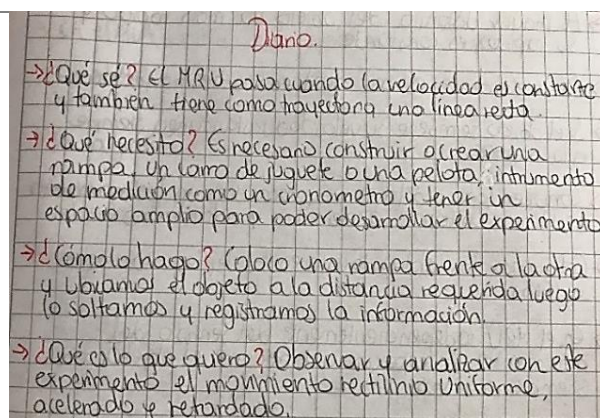 Diario.
→¿Qué sé? El MRU pasa cuando la velocidad es constante
y tambien tiene como trayectoria una linea recta.
→¿Qué necesito? Es necesario construir o crear una
rampa, un carro de juguete o una pelota, intrumento
de medición como un cronometro y tener un
espacio amplio para poder desarrollar el experimento
→¿Cómo lo hago? Coloco una rampa frente a la otra
y ubicamos el objeto a la distancia requerida luego
lo soltamos y registramos la información.
→¿Qué es lo que quero? Observar y analizar con este
experimento el movimiento rectilinio Uniforme,
acelerado y retardado.